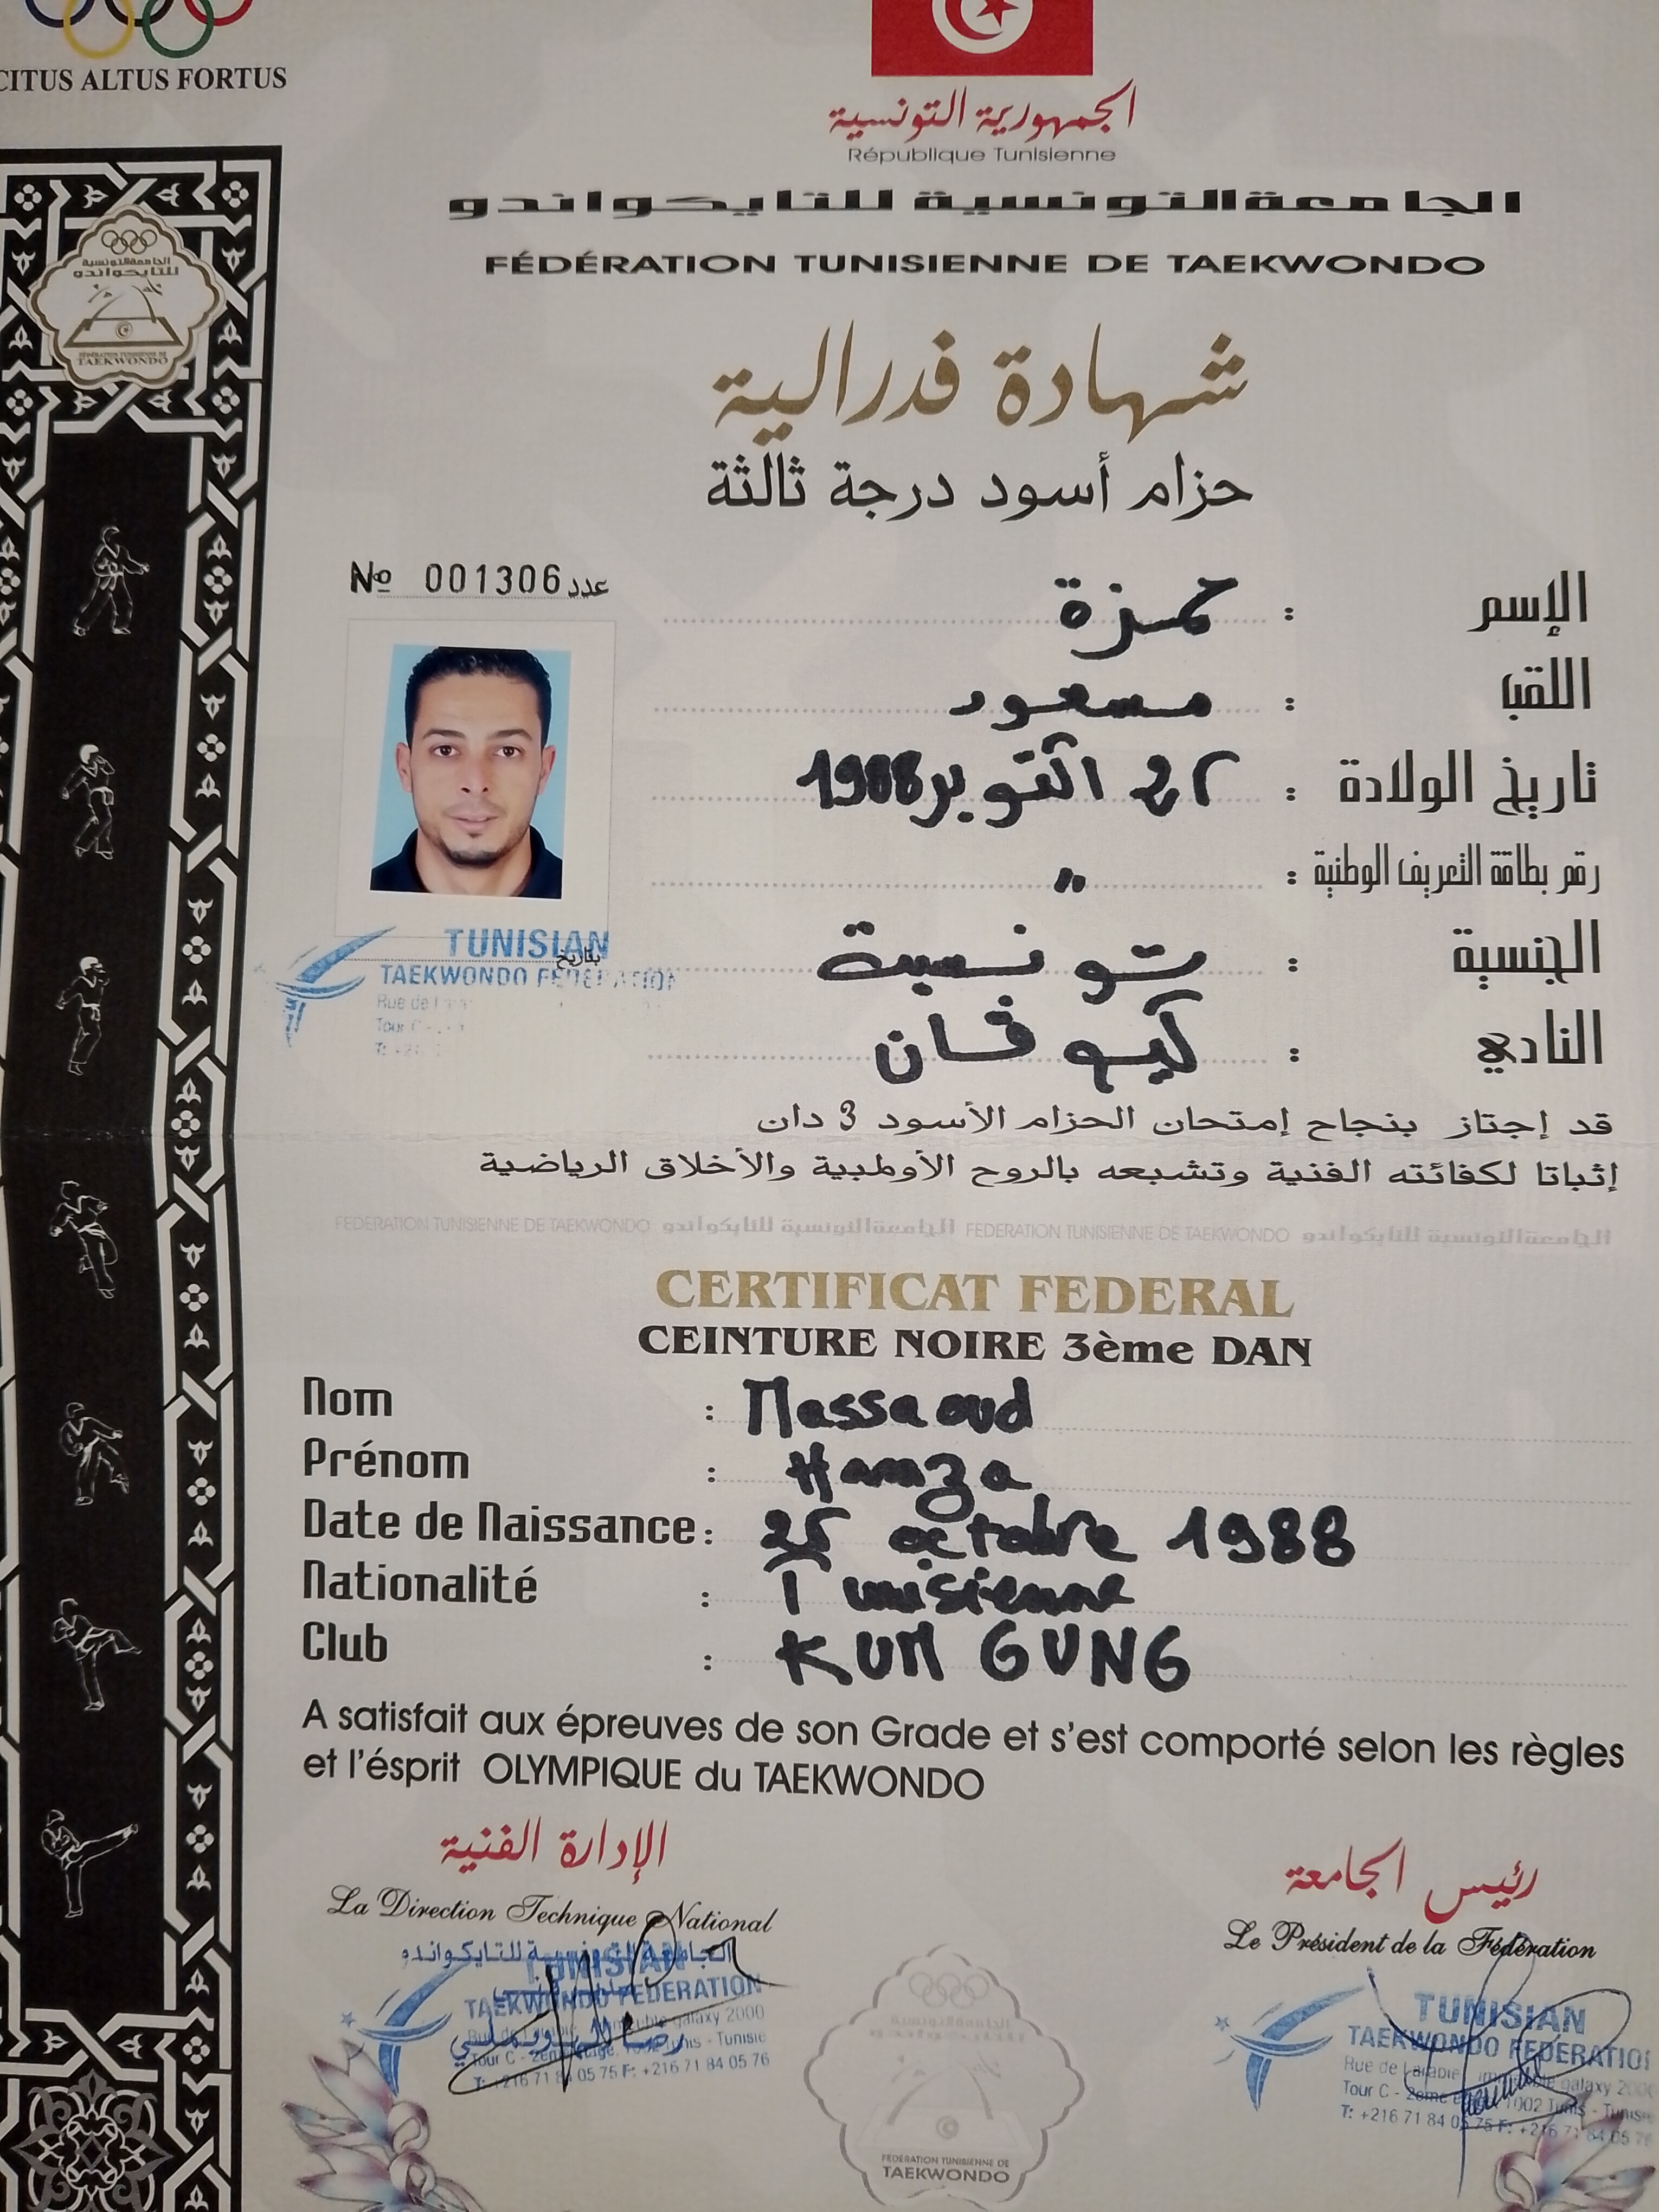 CITUS ALTUS FORTUS
الجمهورية التونسية
République Tunisienne
الجامعة التونسية للتايكواندو
FÉDÉRATION TUNISIENNE DE TAEKWONDO
الجامعة التونسية
للتايكواندو
FÉDÉRATION TUNISIENNE DE
TAEKWONDO
شهادة فدرالية
حزام أسود درجة ثالثة
№ 001306 عدد
الإسم : حمزة
اللقب : مسعود
تاريخ الولادة : 25 اكتوبر 1988
رقم بطاقة التعريف الوطنية : "
الجنسية : تونسية
النادي : كيو فان
بتاريخ
TUNISIAN
TAEKWONDO FEDERATION
Rue de
Tour C -
قد إجتاز بنجاح إمتحان الحزام الأسود 3 دان
إثباتا لكفائته الفنية وتشبعه بالروح الأولمبية والأخلاق الرياضية
FEDERATION TUNISIENNE DE TAEKWONDO الجامعة التونسية للتايكواندو FEDERATION TUNISIENNE DE TAEKWONDO الجامعة التونسية للتايكواندو
CERTIFICAT FEDERAL
CEINTURE NOIRE 3ème DAN
Nom : Messaoud
Prénom : Hamza
Date de Naissance : 25 octobre 1988
Nationalité : Tunisienne
Club : KUM GUNG
A satisfait aux épreuves de son Grade et s'est comporté selon les règles
et l'ésprit OLYMPIQUE du TAEKWONDO
الإدارة الفنية
La Direction Technique National
الجامعة التونسية للتايكواندو
TUNISIAN
TAEKWONDO FEDERATION
galaxy 2000
Tour C - 2ème - Tunisie
T: +216 71 84 05 75 F: +216 71 84 05 76
رئيس الجامعة
Le Président de la Fédération
TUNISIAN
TAEKWONDO FEDERATIO
Rue de galaxy 200
Tour C - 2ème 1002 Tunis - Tunisie
T: +216 71 84 05 75 F: +216 71 84 05 76
FEDERATION TUNISIENNE DE
TAEKWONDO